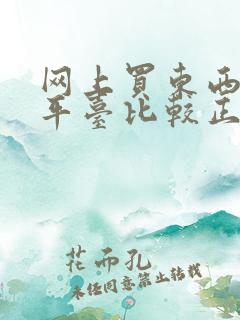 网上買东西
平臺比較正
花而孔
未经同意禁止转载